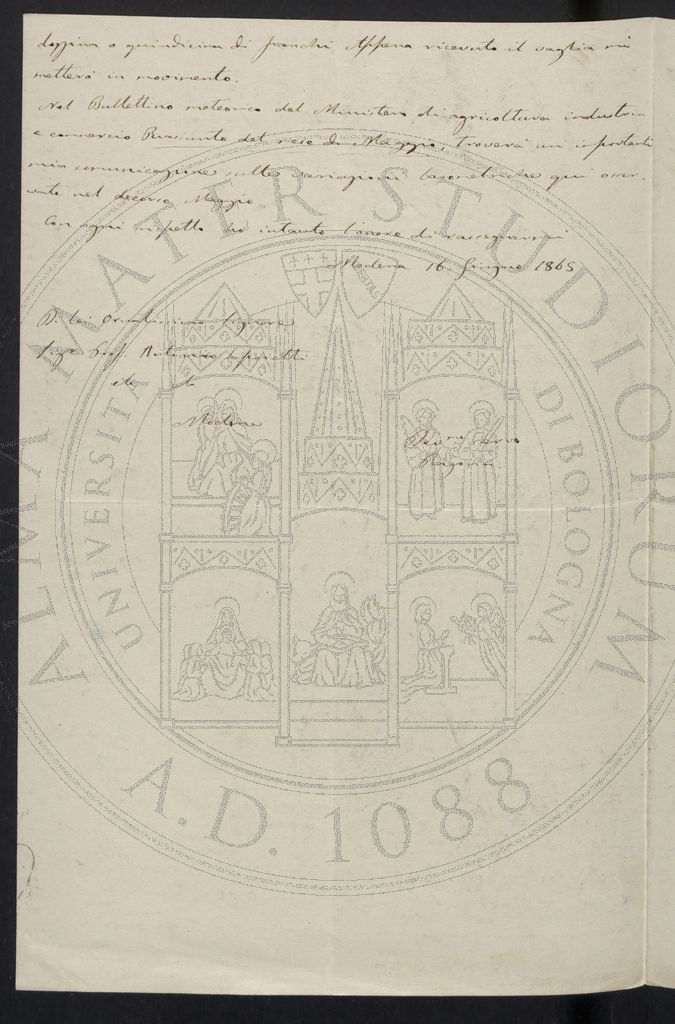 dozzina o quindicina di franchi Appena ricevuto il vaglia mi
metterò in movimento.
Nel Bullettino meteorico del Ministero di agricoltura industria
e commercio Riassunto del mese di Maggio, troverà un importante
mia comunicazione sulle variazioni barometriche qui osser-
vate nel decorso Maggio
Con ogni rispetto ho intanto l'onore di rassegnarmi
Modena 16 Giugno 1865
Di Lei Ornatissimo Signore
Sig.r Prof. Antonio
etc etc
Modena
Dev.mo servo
Ragona
ALMA MATER STUDIORUM
UNIVERSITÀ DI BOLOGNA
A.D. 1088